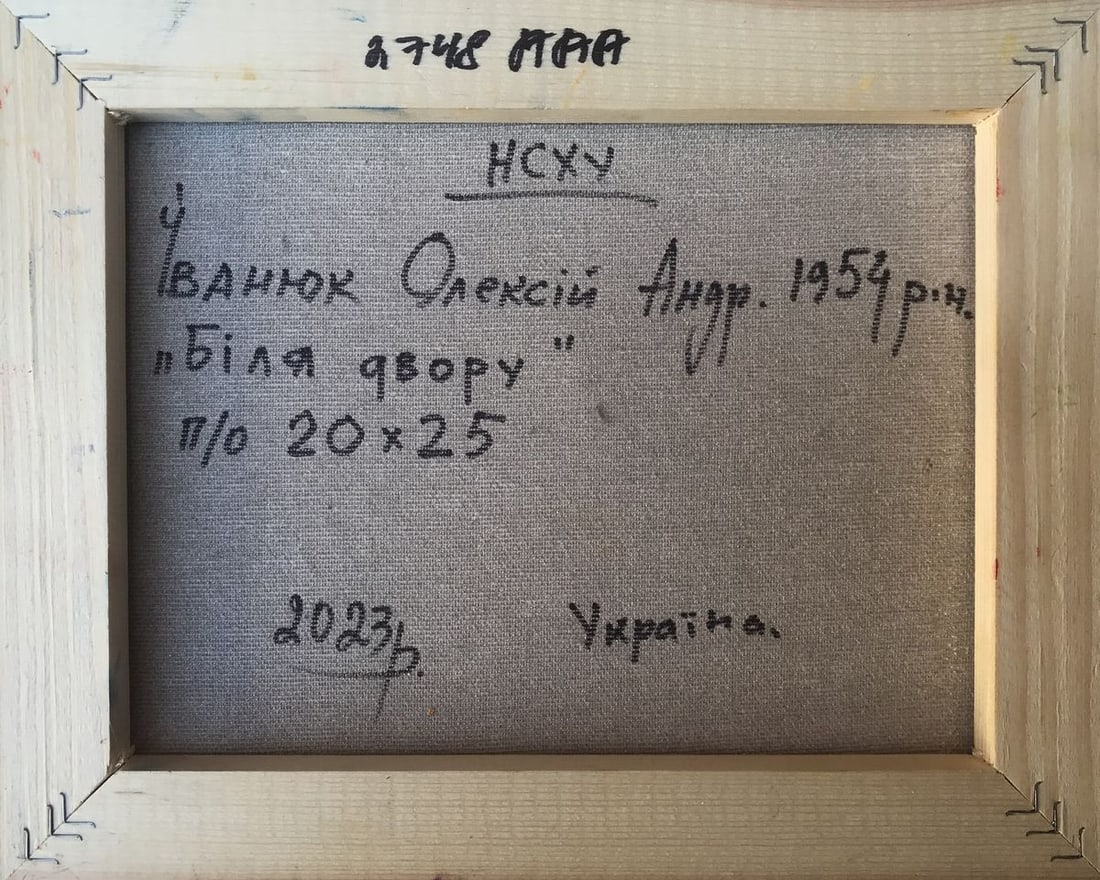 2748 AAA
НСХУ
Іванюк Олексій Андр. 1954 р.н.
„Біля двору"
п/о 20×25
2023р. Україна.